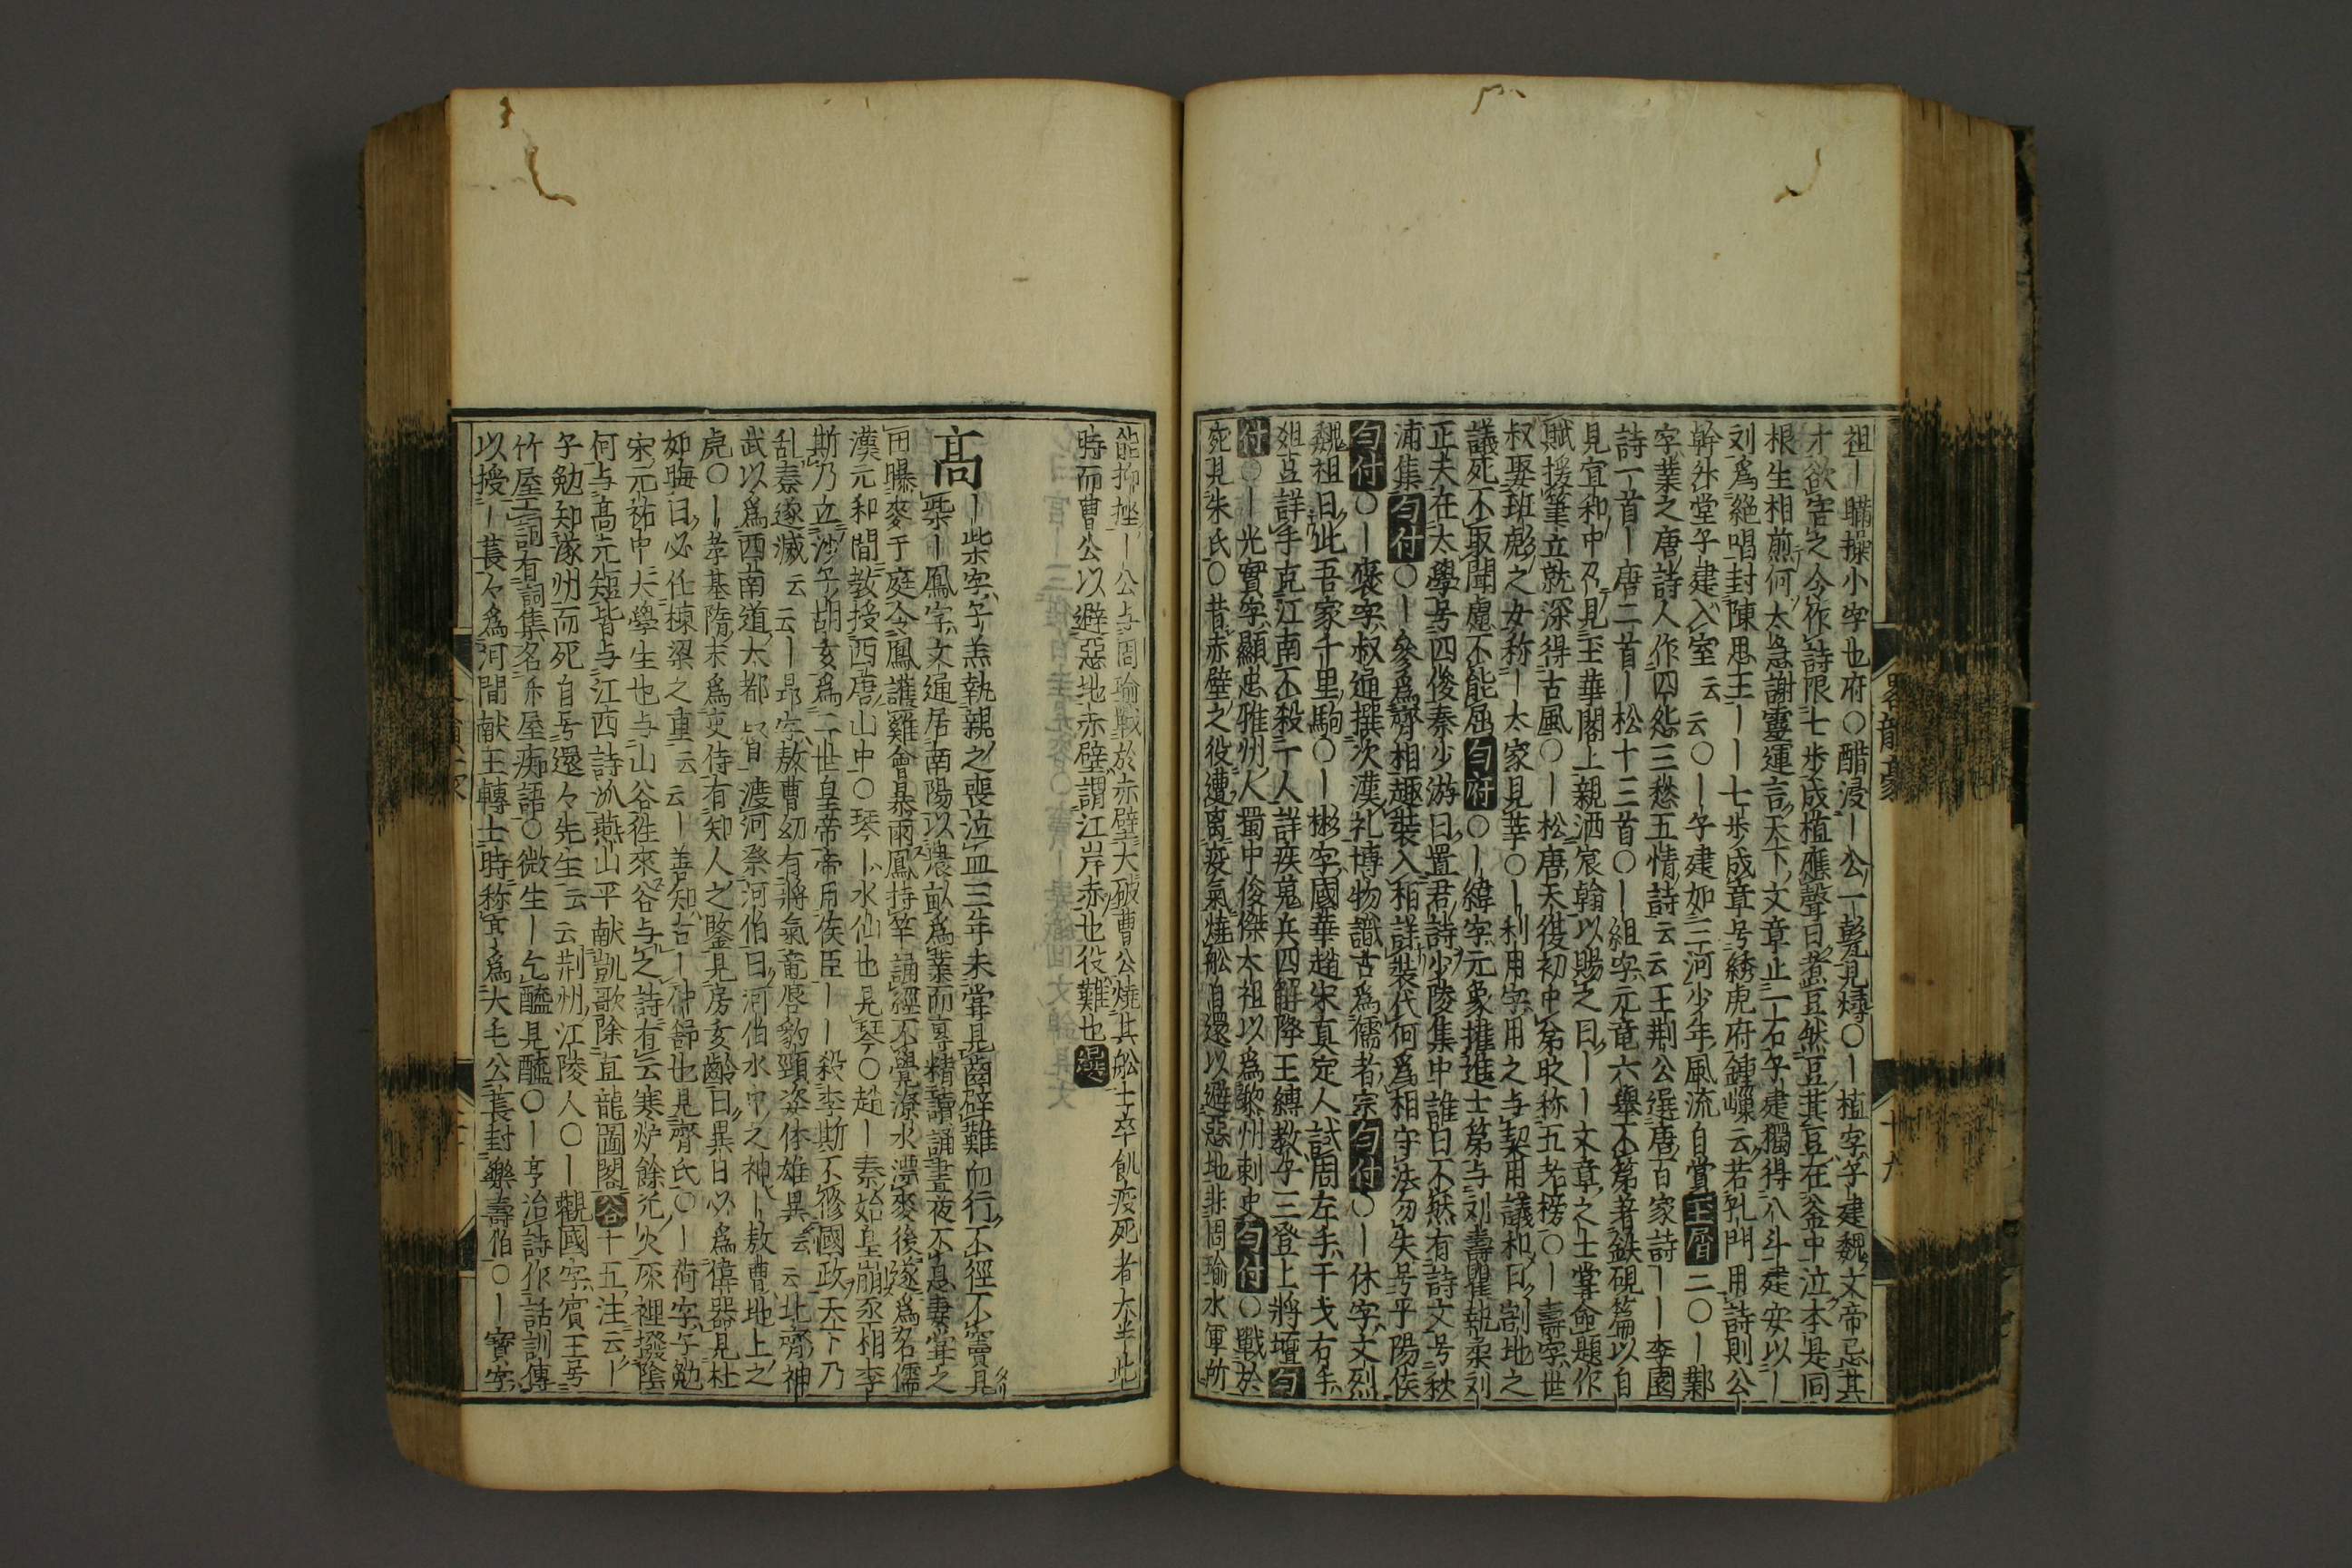 祖｜瞞操小字也府○醋浸｜公一甏見燖○｜植字子建魏文帝忌其
才欲害之令作詩限七步成植應聲曰煮豆然豆萁豆在釜中泣本是同
根生相煎何太急謝靈運言天下文章止一石子建獨得八斗建安以｜
刘爲絕唱封陳思王｜｜七步成章号綉虎府鍾嶸云若孔門用詩則公
幹升堂子建入室云云○｜子建如三河少年風流自賞玉屑二○｜鄴
字業之唐詩人作四怨三愁五情詩云云王荆公選唐百家詩｜｜李園
詩一首｜唐二首｜松十三首○｜組字元竜六舉不第著鉄硯篇以自
見宣和中召見玉華閣上親洒宸翰以賜之曰｜｜文章之士嘗命題作
賦援筆立就深得古風○｜松唐天復初中第時称五老榜○｜壽字世
叔娶班彪之女称｜太家見莘○｜利用字用之与契丹議和曰割地之
議死不敢聞慮不能屈勻府○｜緯字元象擢進士第与刘壽瞿執柔刘
正夫在太學号四俊秦少游曰置君詩少陵集中誰曰不然有詩文号秋
浦集勻付○｜參爲齊相趣裝入相詳裝代何爲相守法勿失号平陽侯
勻付○｜褒字叔通撰次漢礼博物識古爲儒者宗勻付○｜休字文烈
魏祖曰此吾家千里駒○｜彬字國華趙宋眞定人試周左手干戈右手
俎豆詳手克江南不殺一人詳疾蒐兵四解降王縛教子三登上將壇勻
付○｜光實字顯忠雅州人蜀中俊傑太祖以爲黎州刺史勻付○戰於
宛見朱氏○昔赤壁之役遭离疫氣燒舩自還以避惡地非周瑜水軍所
能抑挫｜公与周瑜戰於赤壁大破曹公燒其舩士卒飢疫死者太半此
時而曹公以避惡地赤壁謂江岸赤也役難也
高｜柴字子羔執親之喪泣血三年未嘗見齒辟難而行不徑不竇見
柴｜鳳字文通居南陽以農畝爲業而專精讀誦晝夜不息妻嘗之
田曝麥于庭令鳳護雞會暴雨鳳持竿誦經不覺潦水漂麥後遂爲名儒
漢元和間教授西唐山中○琴｜水仙也見琴○趙｜秦始皇崩丞相李
斯乃立沙子胡亥爲二世皇帝帝用侯臣｜｜殺李斯不修國政天下乃
乱秦遂滅云云｜昻字敖曹幼有將氣竜唇豹頸姿体雄異云云北齊神
武以爲西南道大都督渡河祭河伯曰河伯水中之神｜敖曹地上之
虎○｜孝基隋末爲吏侍有知人之鑒見房玄齡曰異日必爲偉器見杜
如晦曰必任棟梁之重云云｜善知古｜仲舒也見齊氏○｜荷字子勉
宋元祐中大學生也与山谷徃來谷与之詩有云寒炉餘几火灰裡撥陰
何与高元矩皆与江西詩派燕山平献凱歌除直龍圖閣谷十五注云｜
子勉知遂州而死自号還々先生云云荆州江陵人○｜觀國字賓王号
竹屋工詞有詞集名竹屋痴語○微生｜乞醯見醯○｜亨治詩作話訓傳
以授｜萇々爲河間献王轉士時称亨爲大毛公萇封樂壽伯○｜寶字